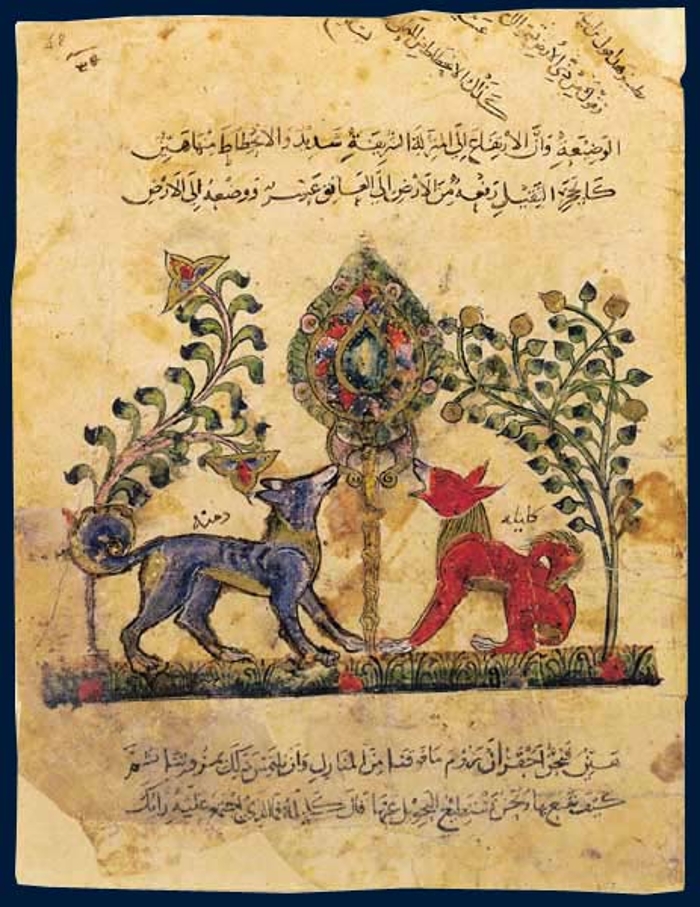 الوضيعة وان الارتفاع الى المنزلة الشريفة شديد والانحطاط منها هين
كالحجر الثقيل رفعه من الارض الى العاتق عسر ووضعه الى الارض
دمنه
كليله
فنحن احق ان نروم ما فوقنا من المنازل وان نلتمس ذلك بمروتنا ثم
كيف نقنع بها ونحن نستطيع التحويل عنها قال كليلة فما الذي اجتمع عليه رايك